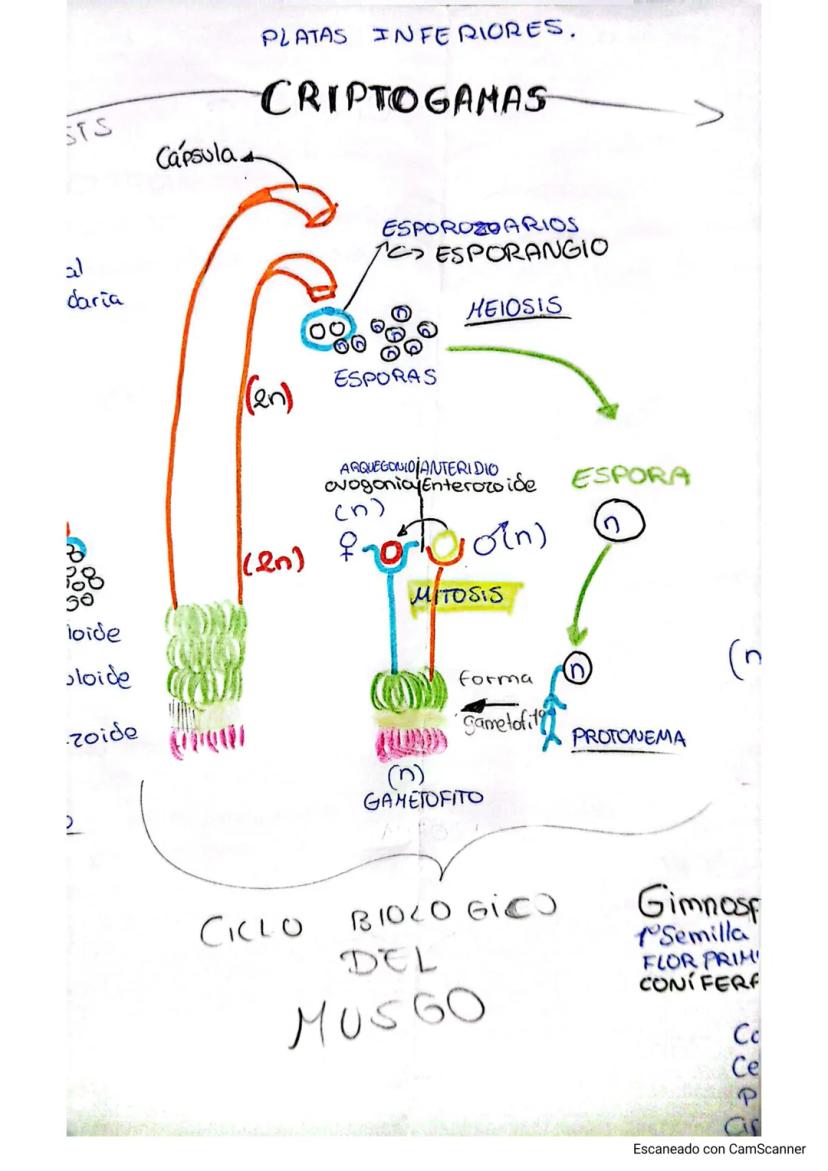 PLATAS INFERIORES.
CRIPTOGAMAS
STS
Cápsula
ESPOROZOARIOS
<-> ESPORANGIO
al
daria
MEIOSIS
n n n n n n n n
ESPORAS
(2n)
ESPORA
n
ARQUEGONIO|ANTERIDIO
ovogonia|Enterozoide
(n)
♀ ♂(n)
(2n)
MITOSIS
loide
ploide
zoide
n
forma
gametofito
PROTONEMA
(n
(n)
GAMETOFITO
CICLO BIOLOGICO
DEL
MUSGO
Gimnosp
1º Semilla
FLOR PRIM
CONÍFERA
Co
Ce
P
Cir
Escaneado con CamScanner